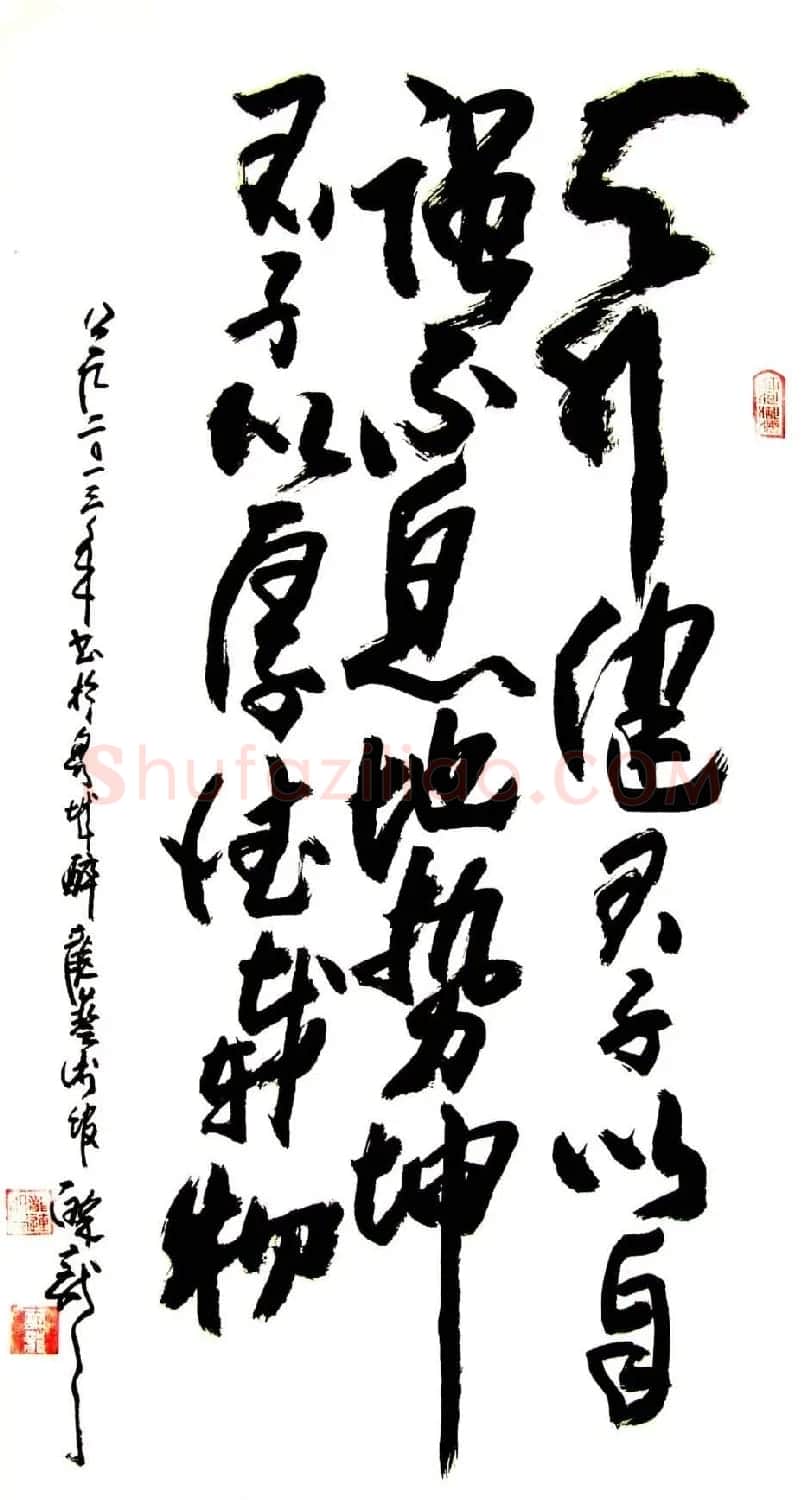 天行健君子以自
强不息地势坤
君子以厚德载物
公元二0一三年书於
Shufaziliao.COM